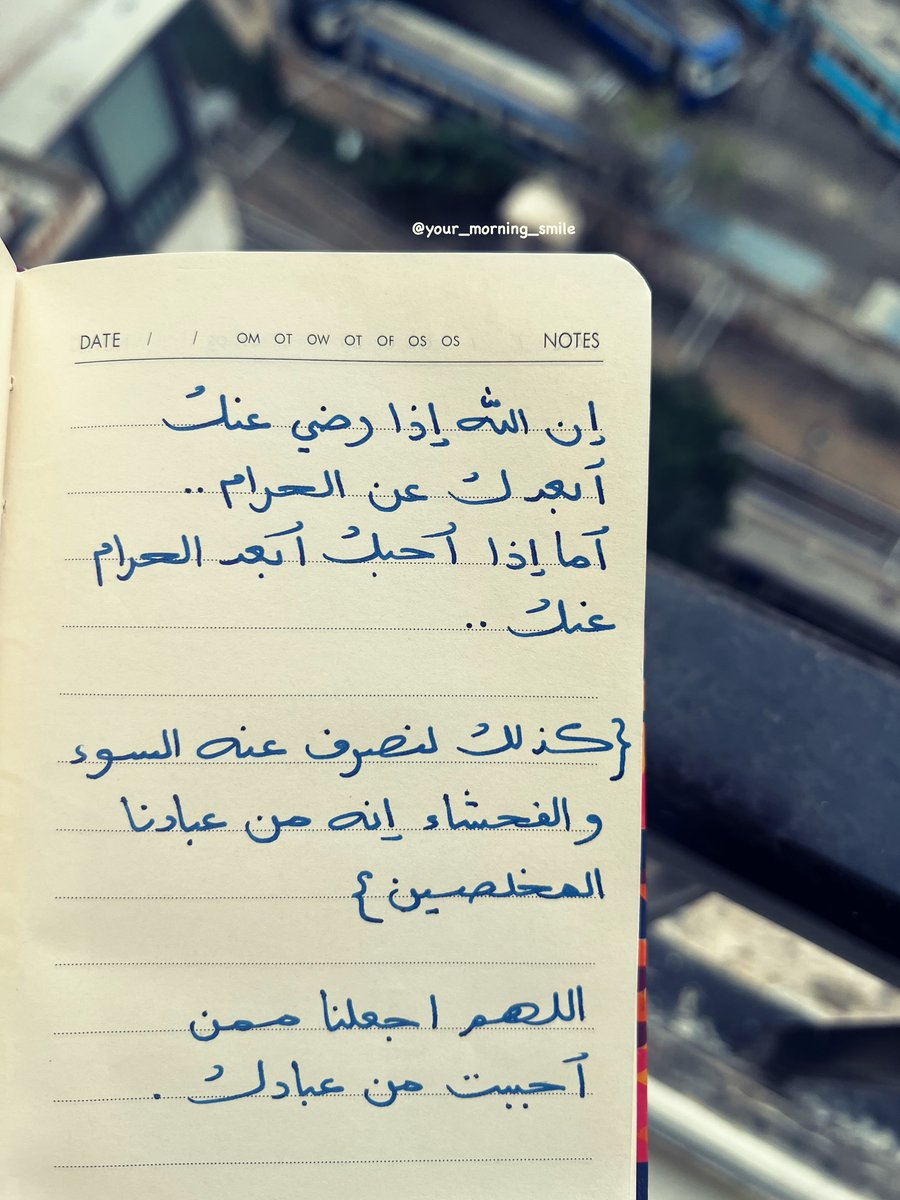 @your_morning_smile
DATE / / OM OT OW OT OF OS OS NOTES
إن الله إذا رضي عنك
أبعدك عن الحرام ..
أما إذا أحبك أبعد الحرام
عنك ..
{كذلك لنصرف عنه السوء
والفحشاء إنه من عبادنا
المخلصين}
اللهم اجعلنا ممن
أحببت من عبادك .